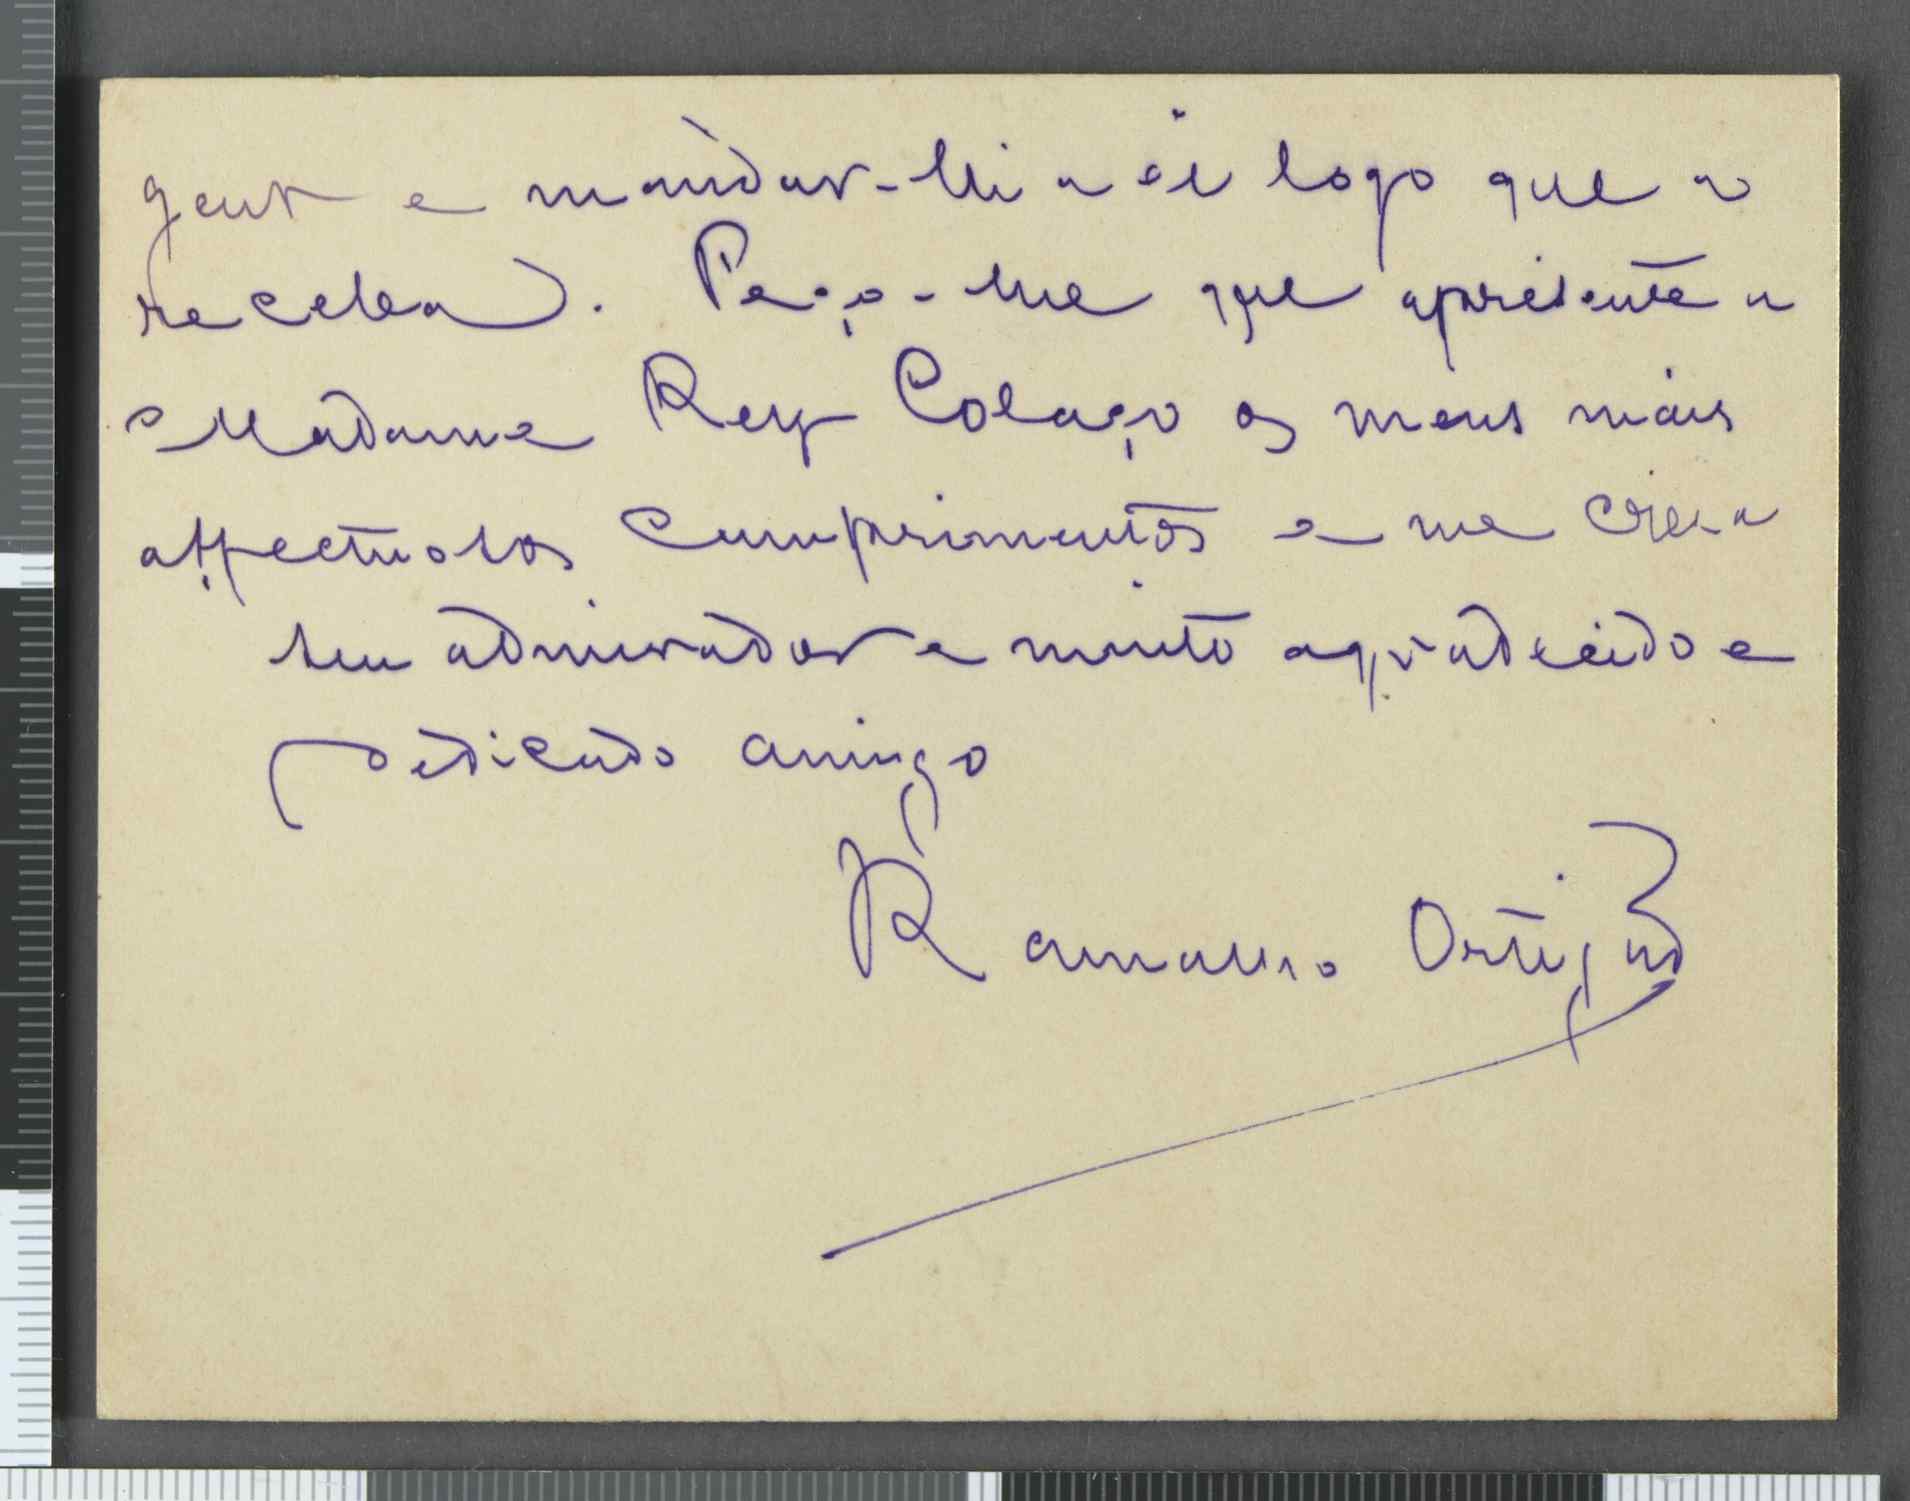 gente e mandar-lh'a-ei logo que a
receba. Peço-lhe que apresente a
Madame Rey Colaço os meus mais
affectuosos cumprimentos e me creia
seu admirador e muito agradecido e
dedicado amigo
Ramalho Ortigão